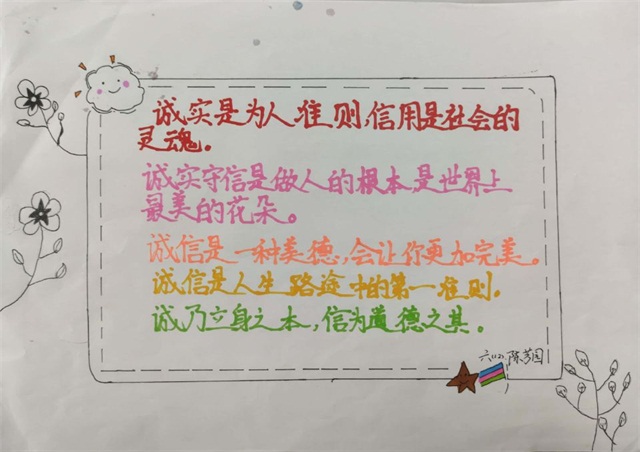 诚实是为人准则,信用是社会的
灵魂。
诚实守信是做人的根本,是世界上
最美的花朵。
诚信是一种美德,会让你更加完美。
诚信是人生路途中的第一准则.
诚乃立身之本,信为道德之其。
六(1)